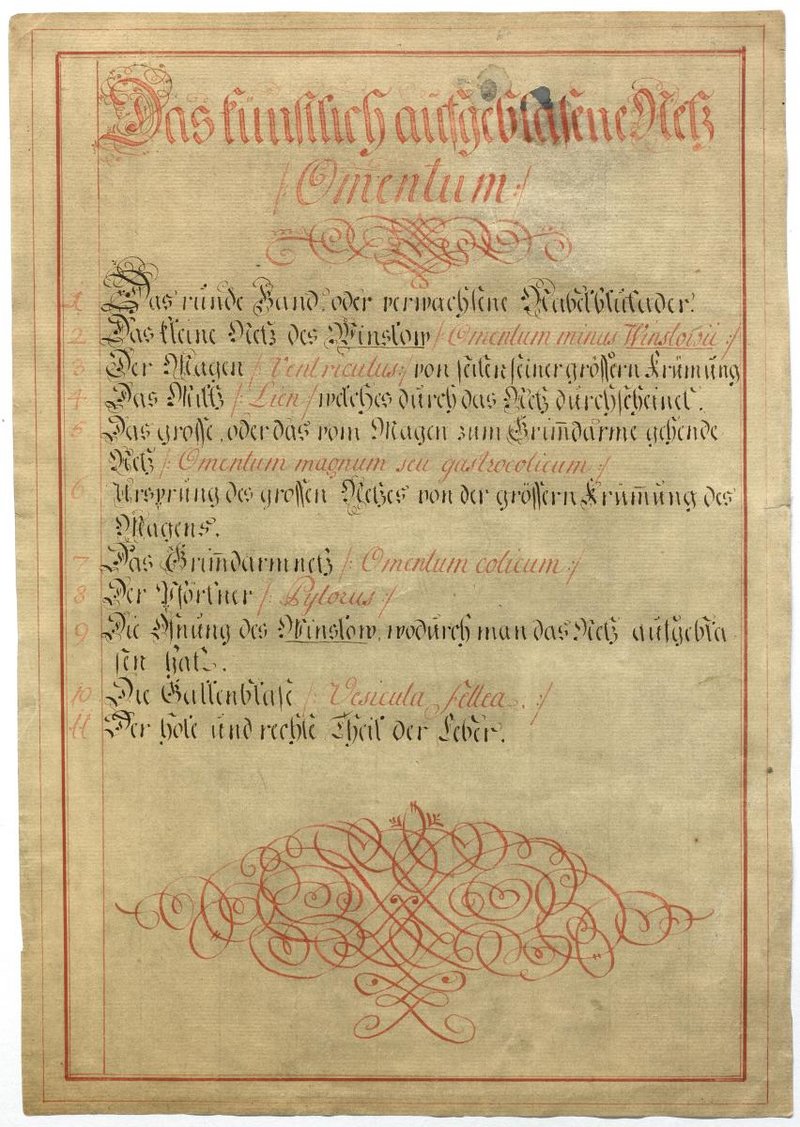 Das künstlich aufgeblasene Netz
/: Omentum :/
1 Das runde Band, oder verwachsene Nabelblutader.
2 Das kleine Netz des Winslow /: Omentum minus Winslowii :/
3 Der Magen /: Ventriculus :/ von seiten seiner grössern Krümung
4 Das Miltz /: Lien :/ welches durch das Netz durchscheinet.
5 Das grosse, oder das vom Magen zum Grim̅darme gehende
Netz /: Omentum magnum seu gastrocolicum :/
6 Ursprung des grossen Netzes von der grössern Krüm̅ung des
Magens.
7 Das Grim̅darmnetz /: Omentum colicum :/
8 Der Pförtner /: Pylorus :/
9 Die Ofnung des Winslow, wodurch man das Netz aufgebla
sen hat.
10 Die Gallenblase /: Vesicula fellea. :/
11 Der hole und rechte Theil der Leber.